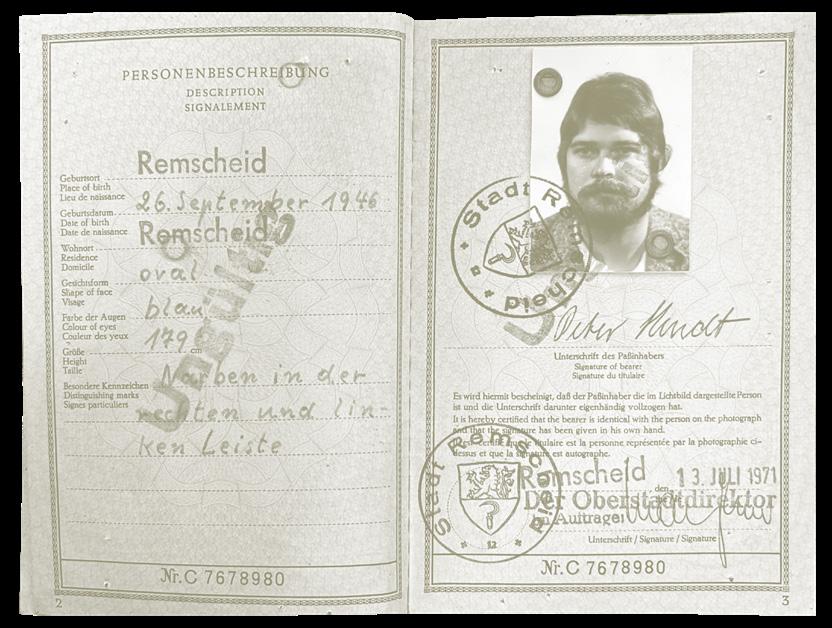 PERSONENBESCHREIBUNG
DESCRIPTION
SIGNALEMENT
Remscheid
Geburtsort
Place of birth
Lieu de naissance
26. September 1946
Geburtsdatum
Date of birth
Date de naissance
Remscheid
Wohnort
Residence
Domicile
oval
Gesichtsform
Shape of face
Visage
blau
Farbe der Augen
Colour of eyes
Couleur des yeux
179 cm
Größe
Height
Taille
Narben in der
Besondere Kennzeichen
Distinguishing marks
Signes particuliers
rechten und lin-
ken Leiste
Ungültig
Nr. C 7678980
2
Stadt Remscheid
Peter
Unterschrift des Paßinhabers
Signature of bearer
Signature du titulaire
Es wird hiermit bescheinigt, daß der Paßinhaber die im Lichtbild dargestellte Person
ist und die Unterschrift darunter eigenhändig vollzogen hat.
It is hereby certified that the bearer is identical with the person on the photograph
and that the signature has been given in his own hand.
que le titulaire est la personne représentée par la photographie ci-
dessus et que la signature est autographe.
Remscheid den 13. JULI 1971
Der Oberstadtdirektor
Im Auftrage:
Stadt Remscheid
12
Unterschrift / Signature / Signature
Nr. C 7678980
3